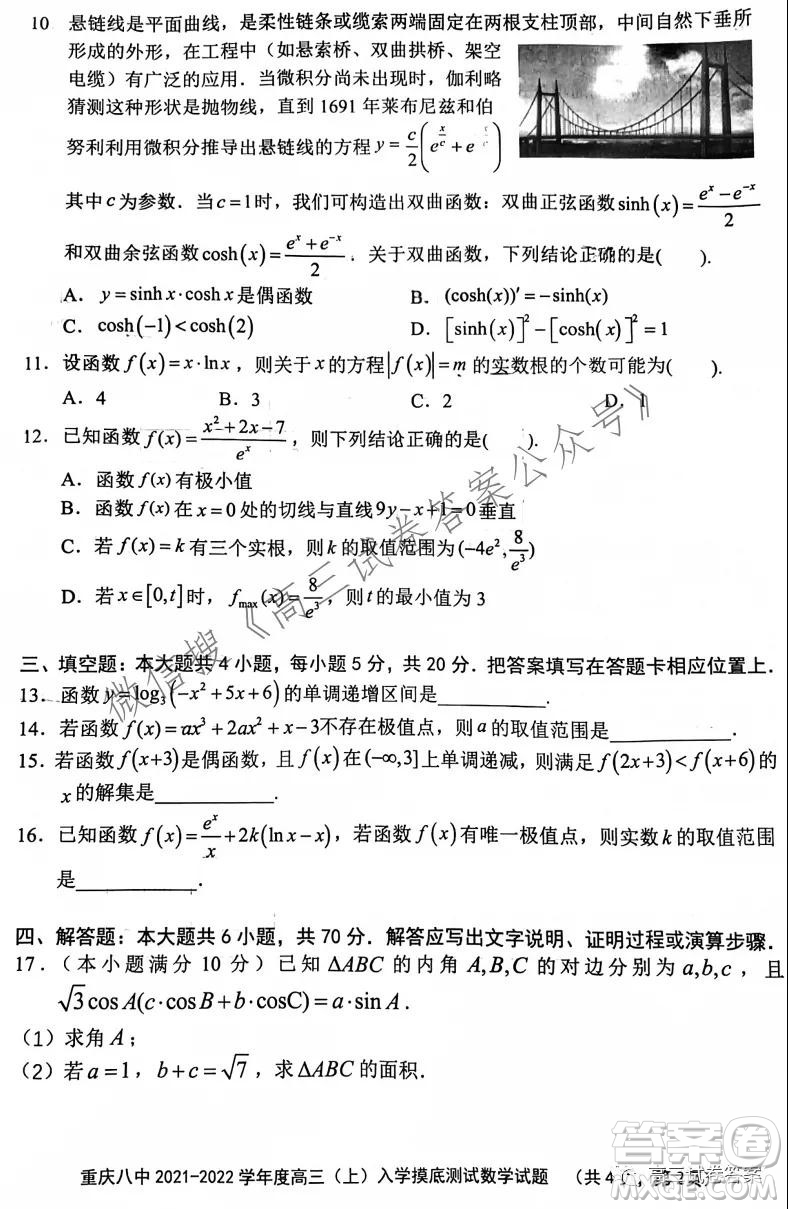 10 悬链线是平面曲线，是柔性链条或缆索两端固定在两根支柱顶部，中间自然下垂所
形成的外形，在工程中（如悬索桥、双曲拱桥、架空
电缆）有广泛的应用．当微积分尚未出现时，伽利略
猜测这种形状是抛物线，直到 1691 年莱布尼兹和伯
努利利用微积分推导出悬链线的方程 y=c/2(e^(x/c)+e^(-x/c))
其中 c 为参数．当 c=1 时，我们可构造出双曲函数：双曲正弦函数 sinh(x)=(e^x-e^(-x))/2
和双曲余弦函数 cosh(x)=(e^x+e^(-x))/2．关于双曲函数，下列结论正确的是( ).
A．y=sinhx·coshx 是偶函数 B．(cosh(x))′=-sinh(x)
C．cosh(-1)<cosh(2) D．[sinh(x)]²-[cosh(x)]²=1
11．设函数 f(x)=x·lnx，则关于 x 的方程 |f(x)|=m 的实数根的个数可能为( ).
A．4 B．3 C．2 D．1
12．已知函数 f(x)=(x²+2x-7)/e^x，则下列结论正确的是( ).
A．函数 f(x) 有极小值
B．函数 f(x) 在 x=0 处的切线与直线 9y-x+1=0 垂直
C．若 f(x)=k 有三个实根，则 k 的取值范围为(-4e²,8/e³)
D．若 x∈[0,t] 时，f_max(x)=8/e³，则 t 的最小值为 3
三、填空题：本大题共 4 小题，每小题 5 分，共 20 分．把答案填写在答题卡相应位置上．
13．函数 y=log₃(-x²+5x+6) 的单调递增区间是________．
14．若函数 f(x)=ax³+2ax²+x-3 不存在极值点，则 a 的取值范围是________．
15．若函数 f(x+3) 是偶函数，且 f(x) 在 (-∞,3] 上单调递减，则满足 f(2x+3)<f(x+6) 的
x 的解集是________．
16．已知函数 f(x)=e^x/x+2k(lnx-x)，若函数 f(x) 有唯一极值点，则实数 k 的取值范围
是________．
四、解答题：本大题共 6 小题，共 70 分．解答应写出文字说明、证明过程或演算步骤．
17．（本小题满分 10 分）已知 ΔABC 的内角 A,B,C 的对边分别为 a,b,c，且
√3cosA(c·cosB+b·cosC)=a·sinA．
（1）求角 A；
（2）若 a=1，b+c=√7，求 ΔABC 的面积．
微信搜《高三试卷答案公众号》
重庆八中 2021-2022 学年度高三（上）入学摸底测试数学试题 （共 4 页，第 2 页）
高三试卷答案